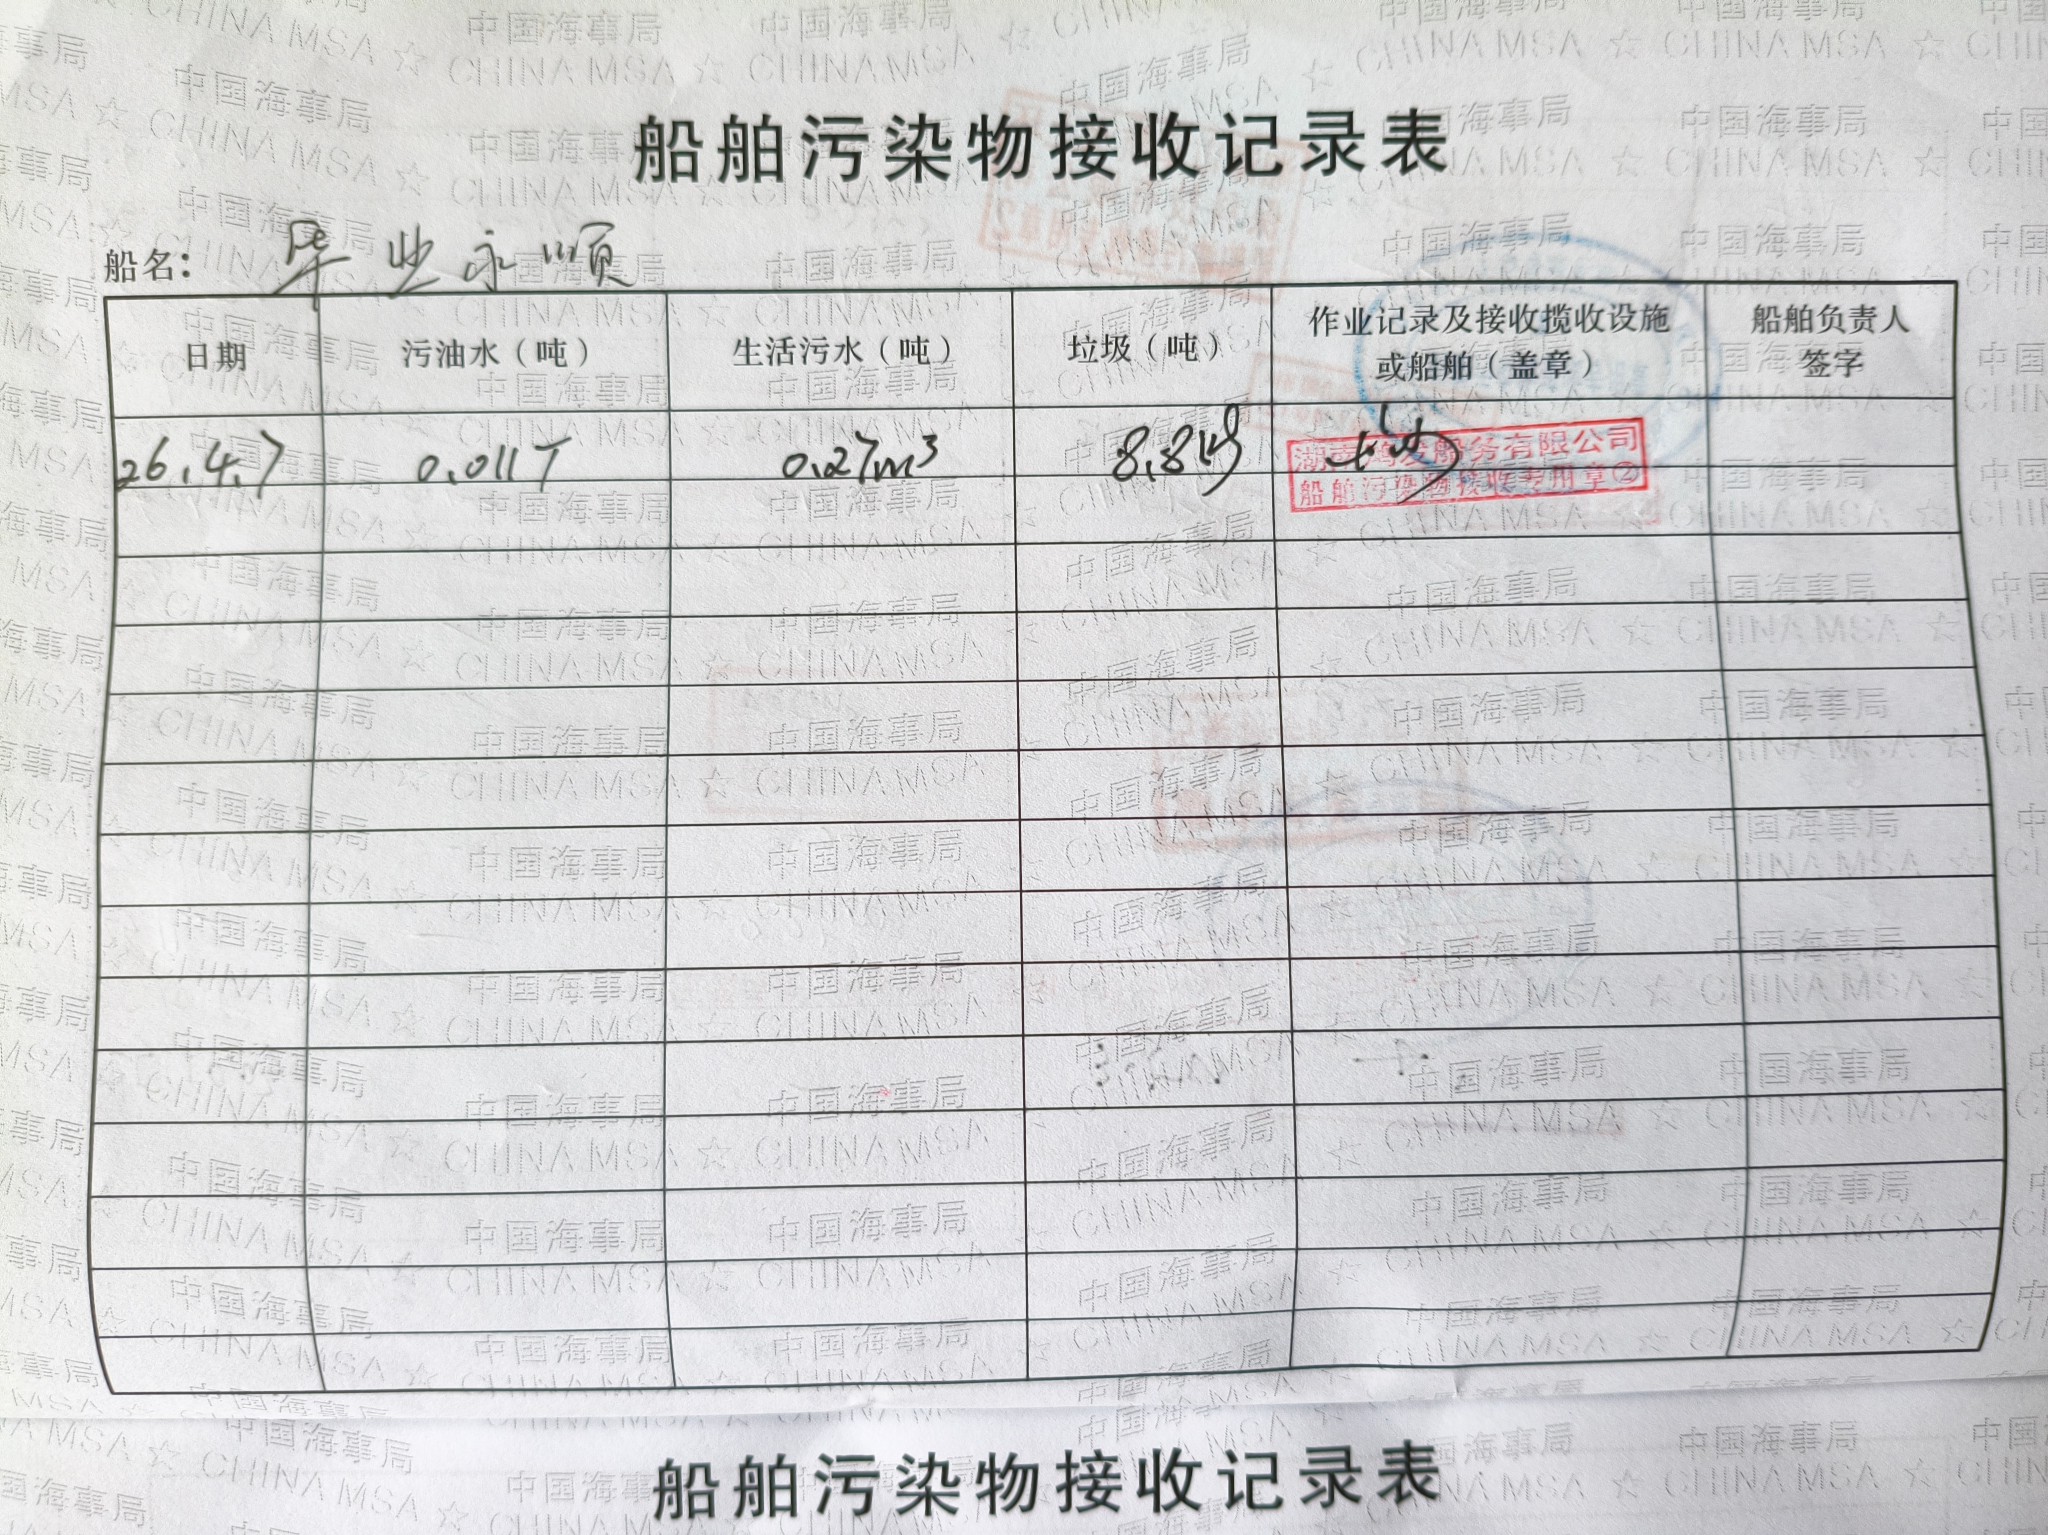 船舶污染物接收记录表
船名： 毕业永顺
日期 污油水（吨） 生活污水（吨） 垃圾（吨） 作业记录及接收揽收设施或船舶（盖章） 船舶负责人签字
26.4.7 0.011T 0.27m³ 8.8kg 长沙
湖南鸿发船务有限公司
船舶污染物接收专用章②
中国海事局
CHINA MSA ☆
船舶污染物接收记录表